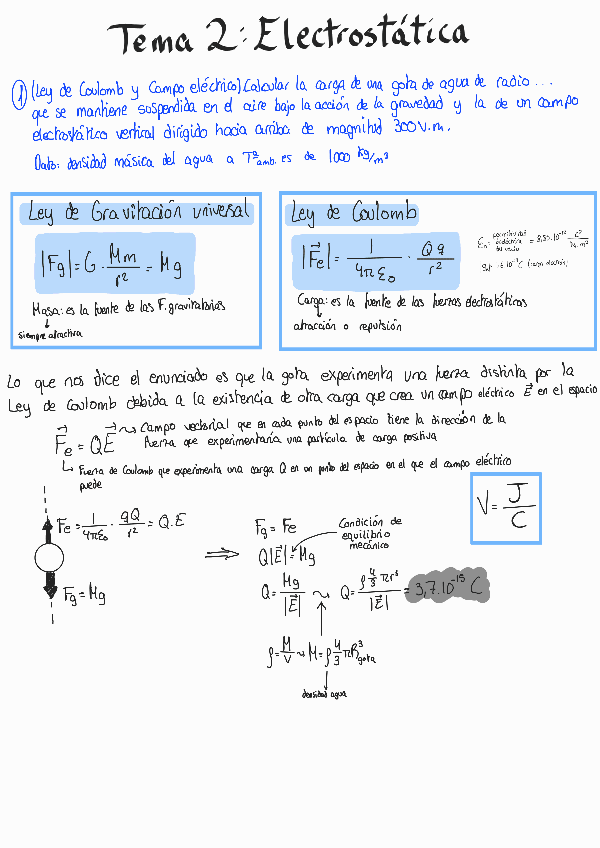 Tema 2: Electrostática
① (Ley de Coulomb y Campo eléctrico) Calcular la carga de una gota de agua de radio ...
que se mantiene suspendida en el aire bajo la acción de la gravedad y la de un campo
electrostático vertical dirigido hacia arriba de magnitud 300 V.m.
Dato: densidad másica del agua a Tª amb. es de 1000 kg/m³
Ley de Gravitación universal
|Fg| = G · Mm / r² = Mg
Masa: es la fuente de las F. gravitatorias
siempre atractiva
Ley de Coulomb
|F⃗e| = 1 / 4πε₀ · Qq / r²
Carga: es la fuente de las fuerzas electrostáticas
atracción o repulsión
permitividad
dieléctrica
del vacío
Lo que nos dice el enunciado es que la gota experimenta una fuerza distinta por la
Ley de Coulomb debida a la existencia de otra carga que crea un campo eléctrico E⃗ en el espacio
F⃗e = QE⃗ ↝ Campo vectorial que en cada punto del espacio tiene la dirección de la
fuerza que experimentaría una partícula de carga positiva
↳ Fuerza de Coulomb que experimenta una carga Q en un punto del espacio en el que el campo eléctrico
puede
V = J / C
Fe = 1 / 4πε₀ · qQ / r² = Q.E
Fg = Mg
⇒
Fg = Fe
Condición de
equilibrio
mecánico
Q|E⃗| = Mg
Q = Mg / |E⃗| ↝ Q = ρ 4/3 πr³ / |E⃗| = 3,7.10⁻¹⁵ C
ρ = M / V ↝ M = ρ 4/3 πR³ gota
densidad agua